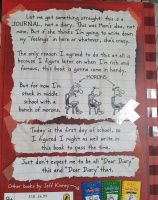 Let me get something straight: this is a
JOURNAL, not a diary. This was Mom's idea, not
mine. But if she thinks I'm going to write down
my "feelings" in here or whatever, she's crazy.
The only reason I agreed to do this at all is
because I figure later on when I'm rich and
famous, this book is gonna come in handy.
MORONS
But for now I'm
stuck in middle
school with a
bunch of morons.
Today is the first day of school, so
I figured I might as well write in
this book to pass the time.
Just don't expect me to be all "Dear Diary"
this and "Dear Diary" that.
Other books by Jeff Kinney: